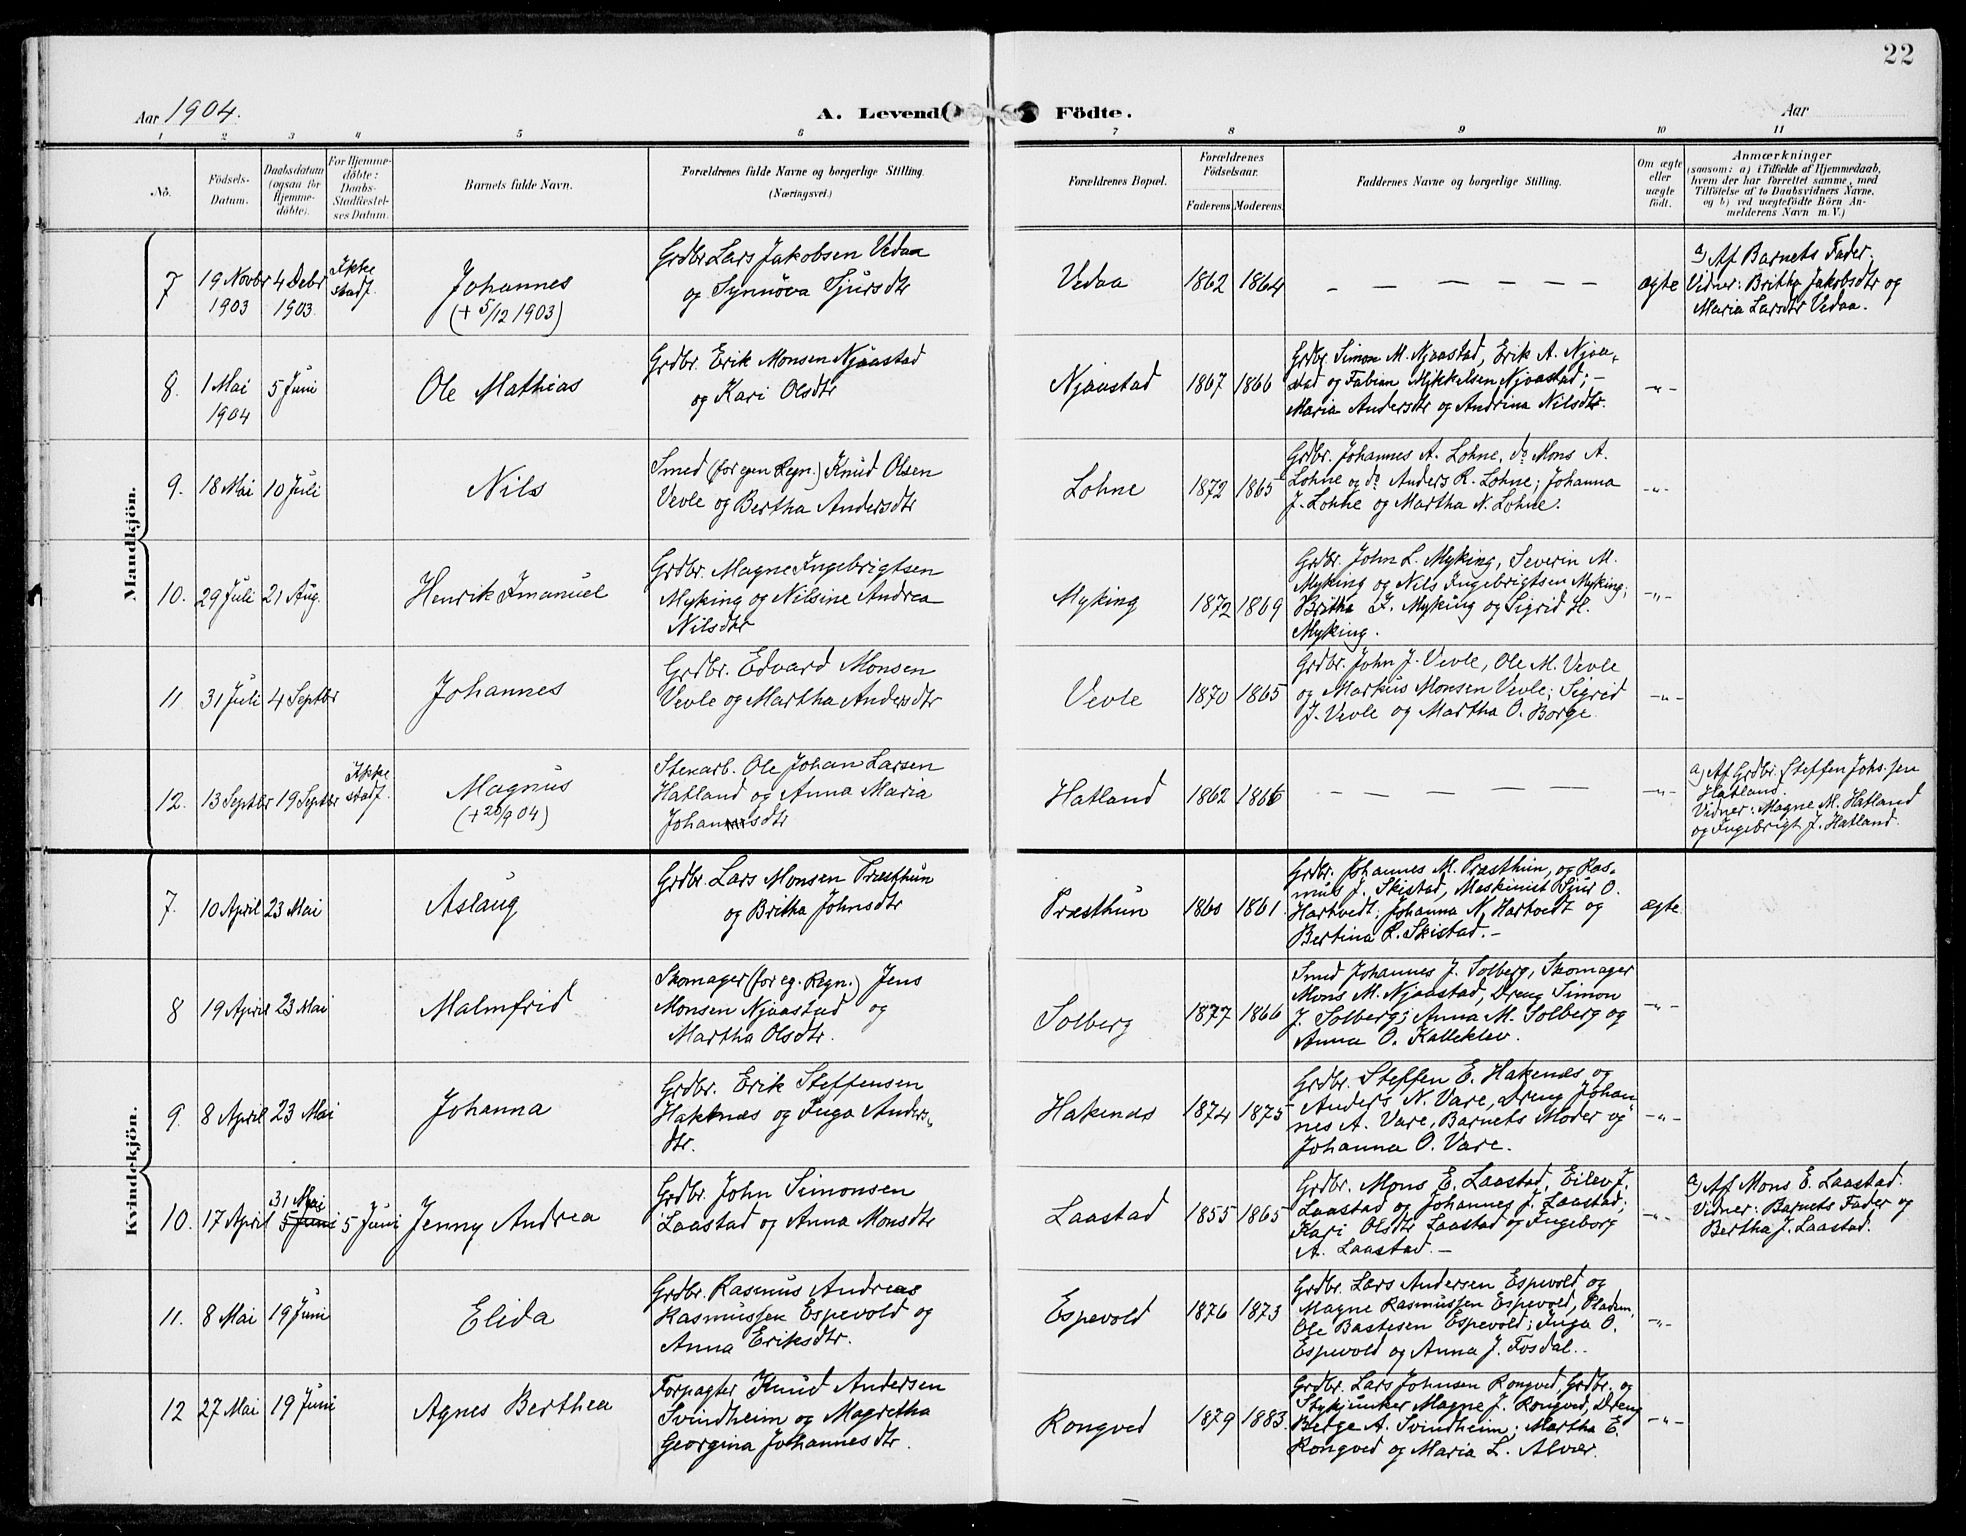 22
Aar 1904.
A. Levende Födte.
Aar
1 2 3 4 5 6 7 8 9 10 11
No.
Födsels-
Datum.
Daabsdatum
(ogsaa for
Hjemme-
döbte).
For Hjemme-
döbte:
Daabs-
Stadfæstel-
ses Datum.
Barnets fulde Navn.
Forældrenes fulde Navne og borgerlige Stilling.
(Næringsvei.)
Forældrenes Bopæl.
Forældrenes
Födselsaar.
Faderens. Moderens.
Faddernes Navne og borgerlige Stilling.
Om ægte
eller
uægte
födt.
Anmærkninger
(saasom: a) i Tilfælde af Hjemmedaab,
hvem der har forrettet samme, med
Tilföielse af to Daabsvidners Navne,
og b) ved uægtefödte Börn An-
melderens Navn m. V.)
Mandkjön.
7
19 Novbr
1903
4 Debr
1903.
Ikke
stadf.
Johannes
(+ 5/12 1903)
Grdbr. Lars Jakobsen Vedaa
og Synnöva Sjursdtr
Vedaa
1862
1864
– – – – – – –
ægte
a) Af Barnets Fader.
Vidner: Britha Jakobsdtr og
Maria Larsdtr Vedaa.
8.
1 Mai
1904
5 Juni
Ole Mathias
Grdbr. Erik Monsen Njaastad
og Kari Olsdtr
Njaastad
1867
1866
Grdbr. Simon M. Njaastad, Erik A. Njaa-
stad og Fabian Mykkelsen Njaastad; –
Maria Andersdtr og Andrina Nilsdtr.
–"–
9.
18 Mai
10 Juli
Nils
Smed (for egen Regn.) Knud Olsen
Vevle og Bertha Andersdtr
Lohne
1872
1865
Grdbr. Johannes A. Lohne, do Mons A.
Lohne og do Anders R. Lohne; Johanna
J. Lohne og Martha N. Lohne.
–"–
10.
29 Juli
21 Aug.
Henrik Imanuel
Grdbr. Magne Ingebrigtsen
Myking og Nilsine Andrea
Nilsdtr
Myking
1872
1869
Grdbr. John L. Myking, Severin M.
Myking og Nils Ingebrigtsen Myking;
Britha I. Myking og Sigrid H.
Myking.
–"–
11.
31 Juli
4 Septbr
Johannes
Grdbr. Edvard Monsen
Vevle og Martha Andersdtr
Vevle
1870
1865
Grdbr. John J. Vevle, Ole M. Vevle
og Markus Monsen Vevle; Sigrid
J. Vevle og Martha O. Borge.
–"–
12.
13 Septbr
19 Septbr
Ikke
stadf.
Magnus
(+ 26/9 04)
Stenarb. Ole Johan Larsen
Hatland og Anna Maria
Johannesdtr
Hatland
1862
1866
– – – – – –
–"–
a) Af Grdbr. Steffen Johs.sen
Hatland.
Vidner: Magne M. Hatland
og Ingebrigt J. Hatland.
Kvindekjön.
7.
10 April
23 Mai
Aslaug
Grdbr. Lars Monsen Præsthun
og Britha Johnsdtr
Præsthun
1860
1861
Grdbr. Johannes M. Præsthun, og Ras-
mus J. Skistad, Maskinist Sjur O.
Hartvedt; Johanna N. Hartvedt og
Bertina R. Skistad. –
ægte
8
19 April
23 Mai
Malmfrid
Skomager (for eg. Regn.) Jens
Monsen Njaastad og
Martha Olsdtr.
Solberg
1877
1866
Smed Johannes J. Solberg, Skomager
Mons M. Njaastad, Dreng Simon
J. Solberg; Anna M. Solberg og
Anna O. Kalleklev.
–"–
9.
8 April
23 Mai
Johanna
Grdbr. Erik Steffensen
Hakenæs og Inga Anders-
dtr.
Hakenæs
1874
1875
Grdbr. Steffen E. Hakenæs og
Anders N. Vare, Dreng Johan-
nes A. Vare, Barnets Moder og
Johanna O. Vare.
–"–
10.
17 April
31 Mai
5 Juni
5 Juni
Jenny Andrea
Grdbr. John Simonsen
Laastad og Anna Monsdtr
Laastad
1855
1865
Grdbr. Mons E. Laastad, Eilev J.
Laastad og Johannes J. Laastad;
Kari Olsdtr Laastad og Ingeborg
A. Laastad. –
–"–
a) Af Mons E. Laastad.
Vidner: Barnets Fader og
Bertha J. Laastad.
11.
8 Mai
19 Juni
Elida
Grdbr. Rasmus Andreas
Rasmussen Espevold og
Anna Eriksdtr.
Espevold
1876
1873
Grdbr. Lars Andersen Espevold og
Magne Rasmussen Espevold, Pladsm.
Ole Bastesen Espevold; Inga O.
Espevold og Anna J. Fosdal.
–"–
12
27 Mai
19 Juni
Agnes Berthea
Forpagter Knud Andersen
Svindheim og Magretha
Georgina Johannesdtr.
Rongved
1879
1883.
Grdbr. Lars Johnsen Rongved, Grdbr. og
Stykjunker Magne J. Rongved, Dreng
Berge A. Svindheim; Martha E.
Rongved og Maria L. Alvær.
–"–